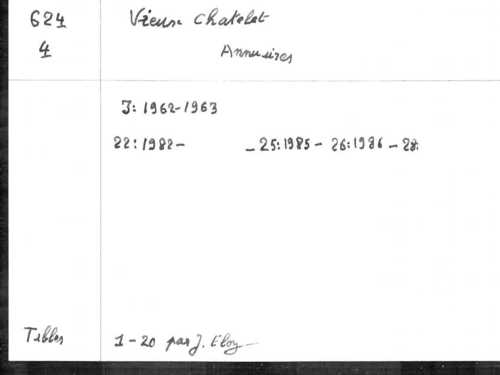 624 Vieux Chatelet
4 Annuaires
I: 1962-1963
22: 1982- - 25:1985 - 26:1986 - 28:
Tables 1-20 par J. Eloy -